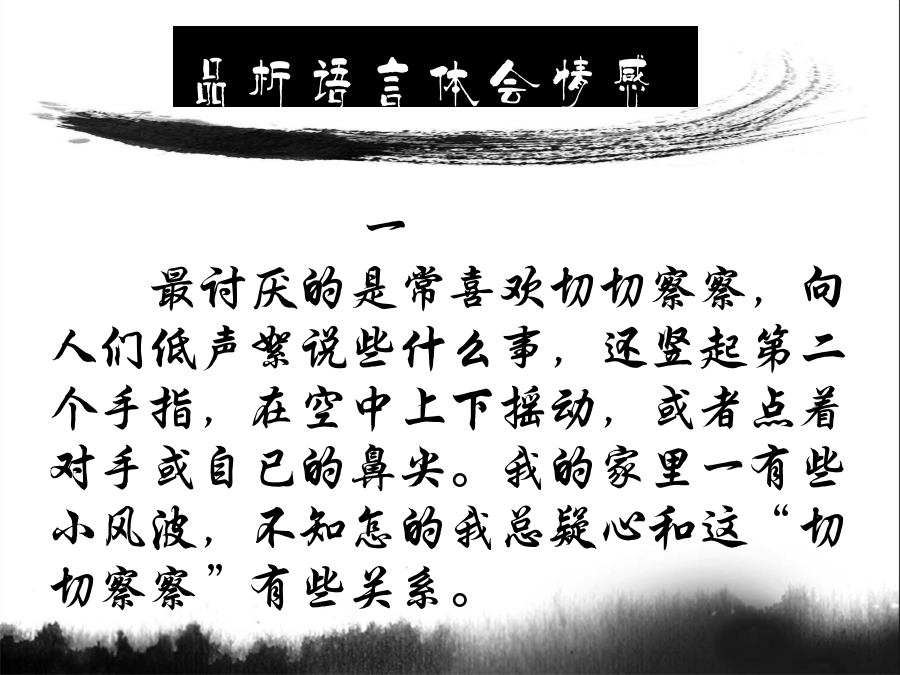 品析语言体会情感
一
最讨厌的是常喜欢切切察察，向
人们低声絮说些什么事，还竖起第二
个手指，在空中上下摇动，或者点着
对手或自己的鼻尖。我的家里一有些
小风波，不知怎的我总疑心和这“切
切察察”有些关系。